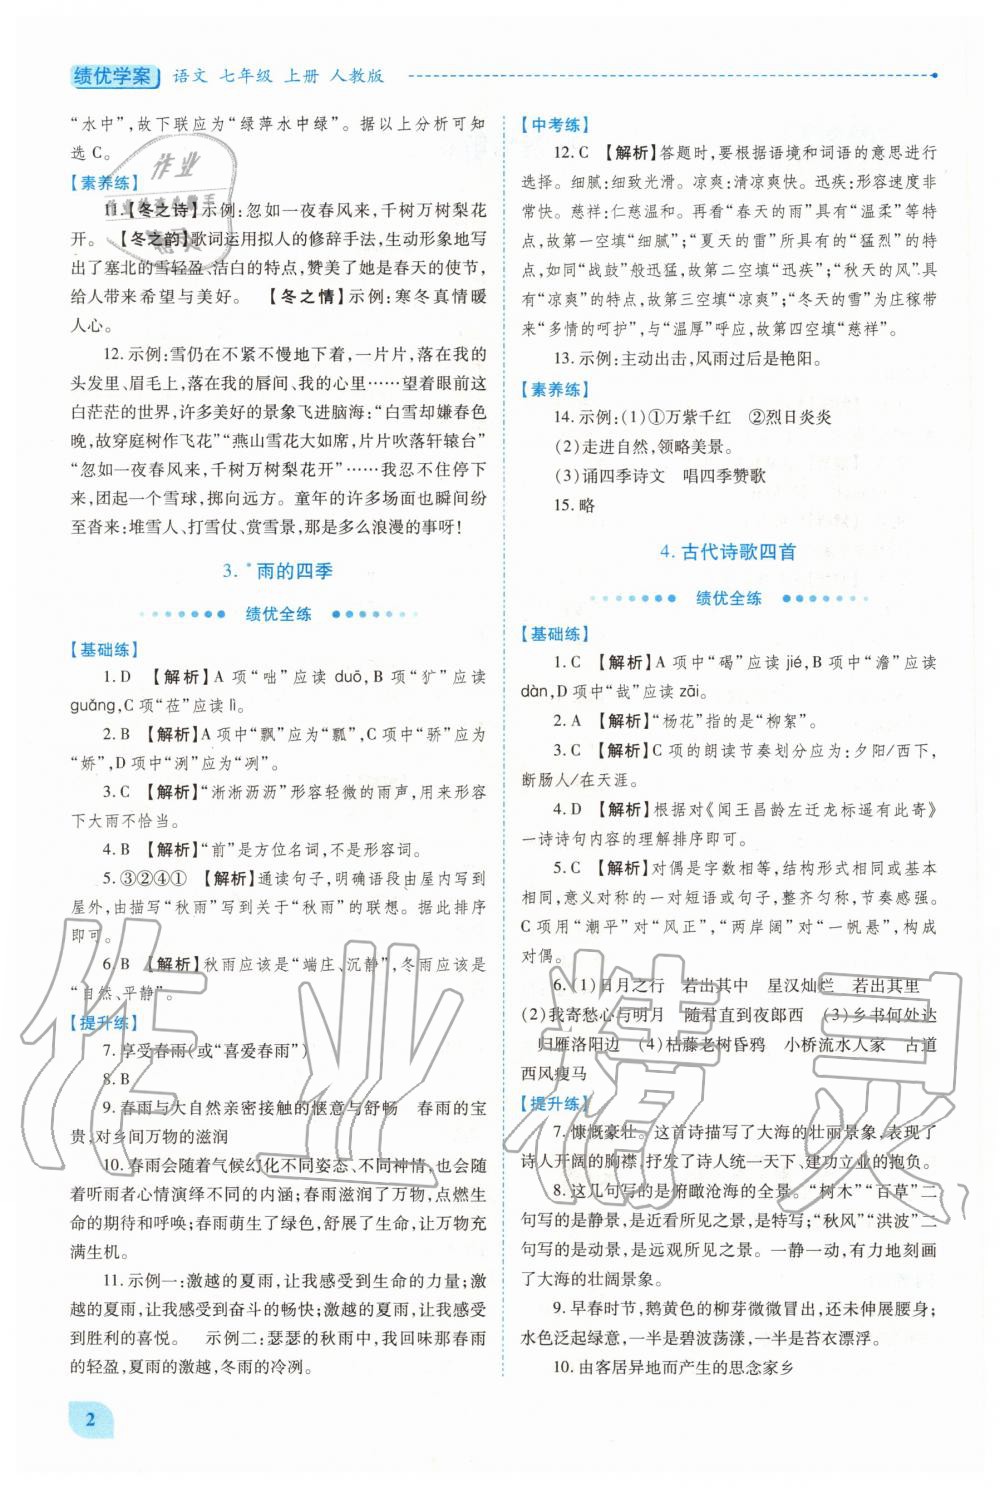 绩优学案 语文 七年级 上册 人教版
“水中”,故下联应为“绿萍水中绿”。据以上分析可知
选C。
【素养练】
11.【冬之诗】示例:忽如一夜春风来,千树万树梨花
开。 【冬之韵】歌词运用拟人的修辞手法,生动形象地写
出了塞北的雪轻盈、洁白的特点,赞美了她是春天的使节,
给人带来希望与美好。 【冬之情】示例:寒冬真情暖
人心。
12.示例:雪仍在不紧不慢地下着,一片片,落在我的
头发里、眉毛上,落在我的唇间、我的心里……望着眼前的
白茫茫的世界,许多美好的景象飞进脑海:“白雪却嫌春色
晚,故穿庭树作飞花”“燕山雪花大如席,片片吹落轩辕台”
“忽如一夜春风来,千树万树梨花开”……我忍不住停下
来,团起一个雪球,掷向远方。童年的许多场面也瞬间纷
至沓来:堆雪人、打雪仗、赏雪景,那是多么浪漫的事呀!
3.*雨的四季
绩优全练
【基础练】
1.D 【解析】A项“咄”应读duō,B项“犷”应读
guǎng,C项“莅”应读lì。
2.B 【解析】A项中“飘”应为“瓢”,C项中“骄”应为
“娇”,D项中“洌”应为“冽”。
3.C 【解析】“淅淅沥沥”形容轻微的雨声,用来形容
下大雨不恰当。
4.B 【解析】“前”是方位名词,不是形容词。
5.③②④① 【解析】通读句子,明确语段由屋内写到
屋外,由描写“秋雨”写到关于“秋雨”的联想。据此排序
即可。
6.B 【解析】秋雨应该是“端庄、沉静”,冬雨应该是
“自然、平静”。
【提升练】
7.享受春雨(或“喜爱春雨”)
8.B
9.春雨与大自然亲密接触的惬意与舒畅 春雨的宝
贵,对乡间万物的滋润
10.春雨会随着气候幻化不同姿态、不同神情,也会随
着听雨者心情演绎不同的内涵;春雨滋润了万物,点燃生
命的期待和呼唤;春雨萌生了绿色,舒展了生命,让万物充
满生机。
11.示例一:激越的夏雨,让我感受到生命的力量;激
越的夏雨,让我感受到奋斗的畅快;激越的夏雨,让我感受
到胜利的喜悦。 示例二:瑟瑟的秋雨中,我回味那春雨
的轻盈,夏雨的激越,冬雨的冷冽。
2
【中考练】
12.C 【解析】答题时,要根据语境和词语的意思进行
选择。细腻:细致光滑。凉爽:清凉爽快。迅疾:形容速度非
常快。慈祥:仁慈温和。再看“春天的雨”具有“柔媚”等特
点,故第一空填“细腻”;“夏天的雷”所具有的“猛烈”的特
点,如同“战鼓”般迅猛,故第二空填“迅疾”;“秋天的风”
具有“凉爽”的特点,故第三空填“凉爽”;“冬天的雪”为庄稼带
来“多情的呵护”,与“温厚”呼应,故第四空填“慈祥”。
13.示例:主动出击,风雨过后是艳阳。
【素养练】
14.示例:(1)①万紫千红 ②烈日炎炎
(2)走进自然,领略美景。
(3)诵四季诗文 唱四季赞歌
15.略
4.古代诗歌四首
绩优全练
【基础练】
1.C 【解析】A项中“碣”应读jié,B项中“澹”应读
dàn,D项中“哉”应读zāi。
2.A 【解析】“杨花”指的是“柳絮”。
3.C 【解析】C项的朗读节奏划分应为:夕阳/西下,
断肠人/在天涯。
4.D 【解析】根据对《闻王昌龄左迁龙标遥有此寄》
一诗诗句内容的理解排序即可。
5.C 【解析】对偶是字数相等,结构形式相同或基本
相同,意义对称的一对短语或句子,整齐匀称,节奏感强。
C项用“潮平”对“风正”,“两岸阔”对“一帆悬”,构成
对偶。
6.(1)日月之行 若出其中 星汉灿烂 若出其里
(2)我寄愁心与明月 随君直到夜郎西 (3)乡书何处达
归雁洛阳边 (4)枯藤老树昏鸦 小桥流水人家 古道
西风瘦马
【提升练】
7.慷慨豪壮。这首诗描写了大海的壮丽景象,表现了
诗人开阔的胸襟,抒发了诗人统一天下、建功立业的抱负。
8.这几句写的是俯瞰沧海的全景。“树木”“百草”二
句写的是静景,是近看所见之景,是特写;“秋风”“洪波”二
句写的是动景,是远观所见之景。一静一动,有力地刻画
了大海的壮阔景象。
9.早春时节,鹅黄色的柳芽微微冒出,还未伸展腰身;
水色泛起绿意,一半是碧波荡漾,一半是苔衣漂浮。
10.由客居异地而产生的思念家乡
作业精灵